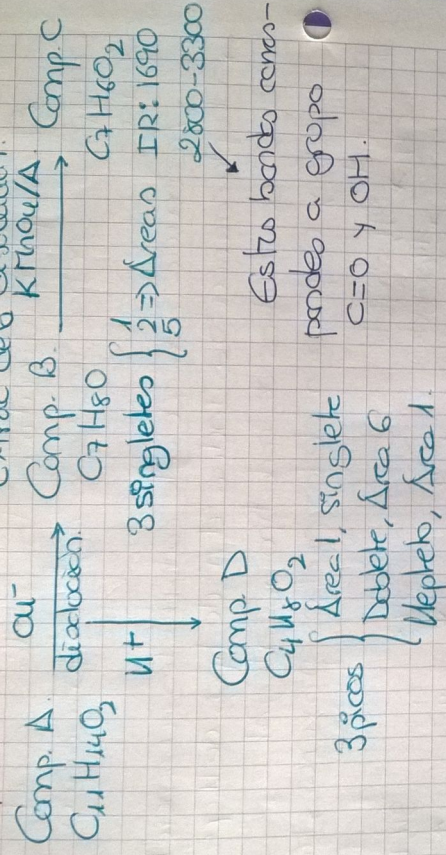 Comp. A.
C11H14O2
OH-
disolución.
H+
Comp. B.
C7H8O
3 singletes { 1 2 5 => Áreas
KMnO4/Δ
Comp. C
C7H6O2
IR: 1690
2800-3300
Estas bandas corres-
ponden a grupo
C=O y OH.
Comp D
C4H8O2
3 picos { Área 1, singlete
Doblete, Área 6
Hepteto, Área 1.